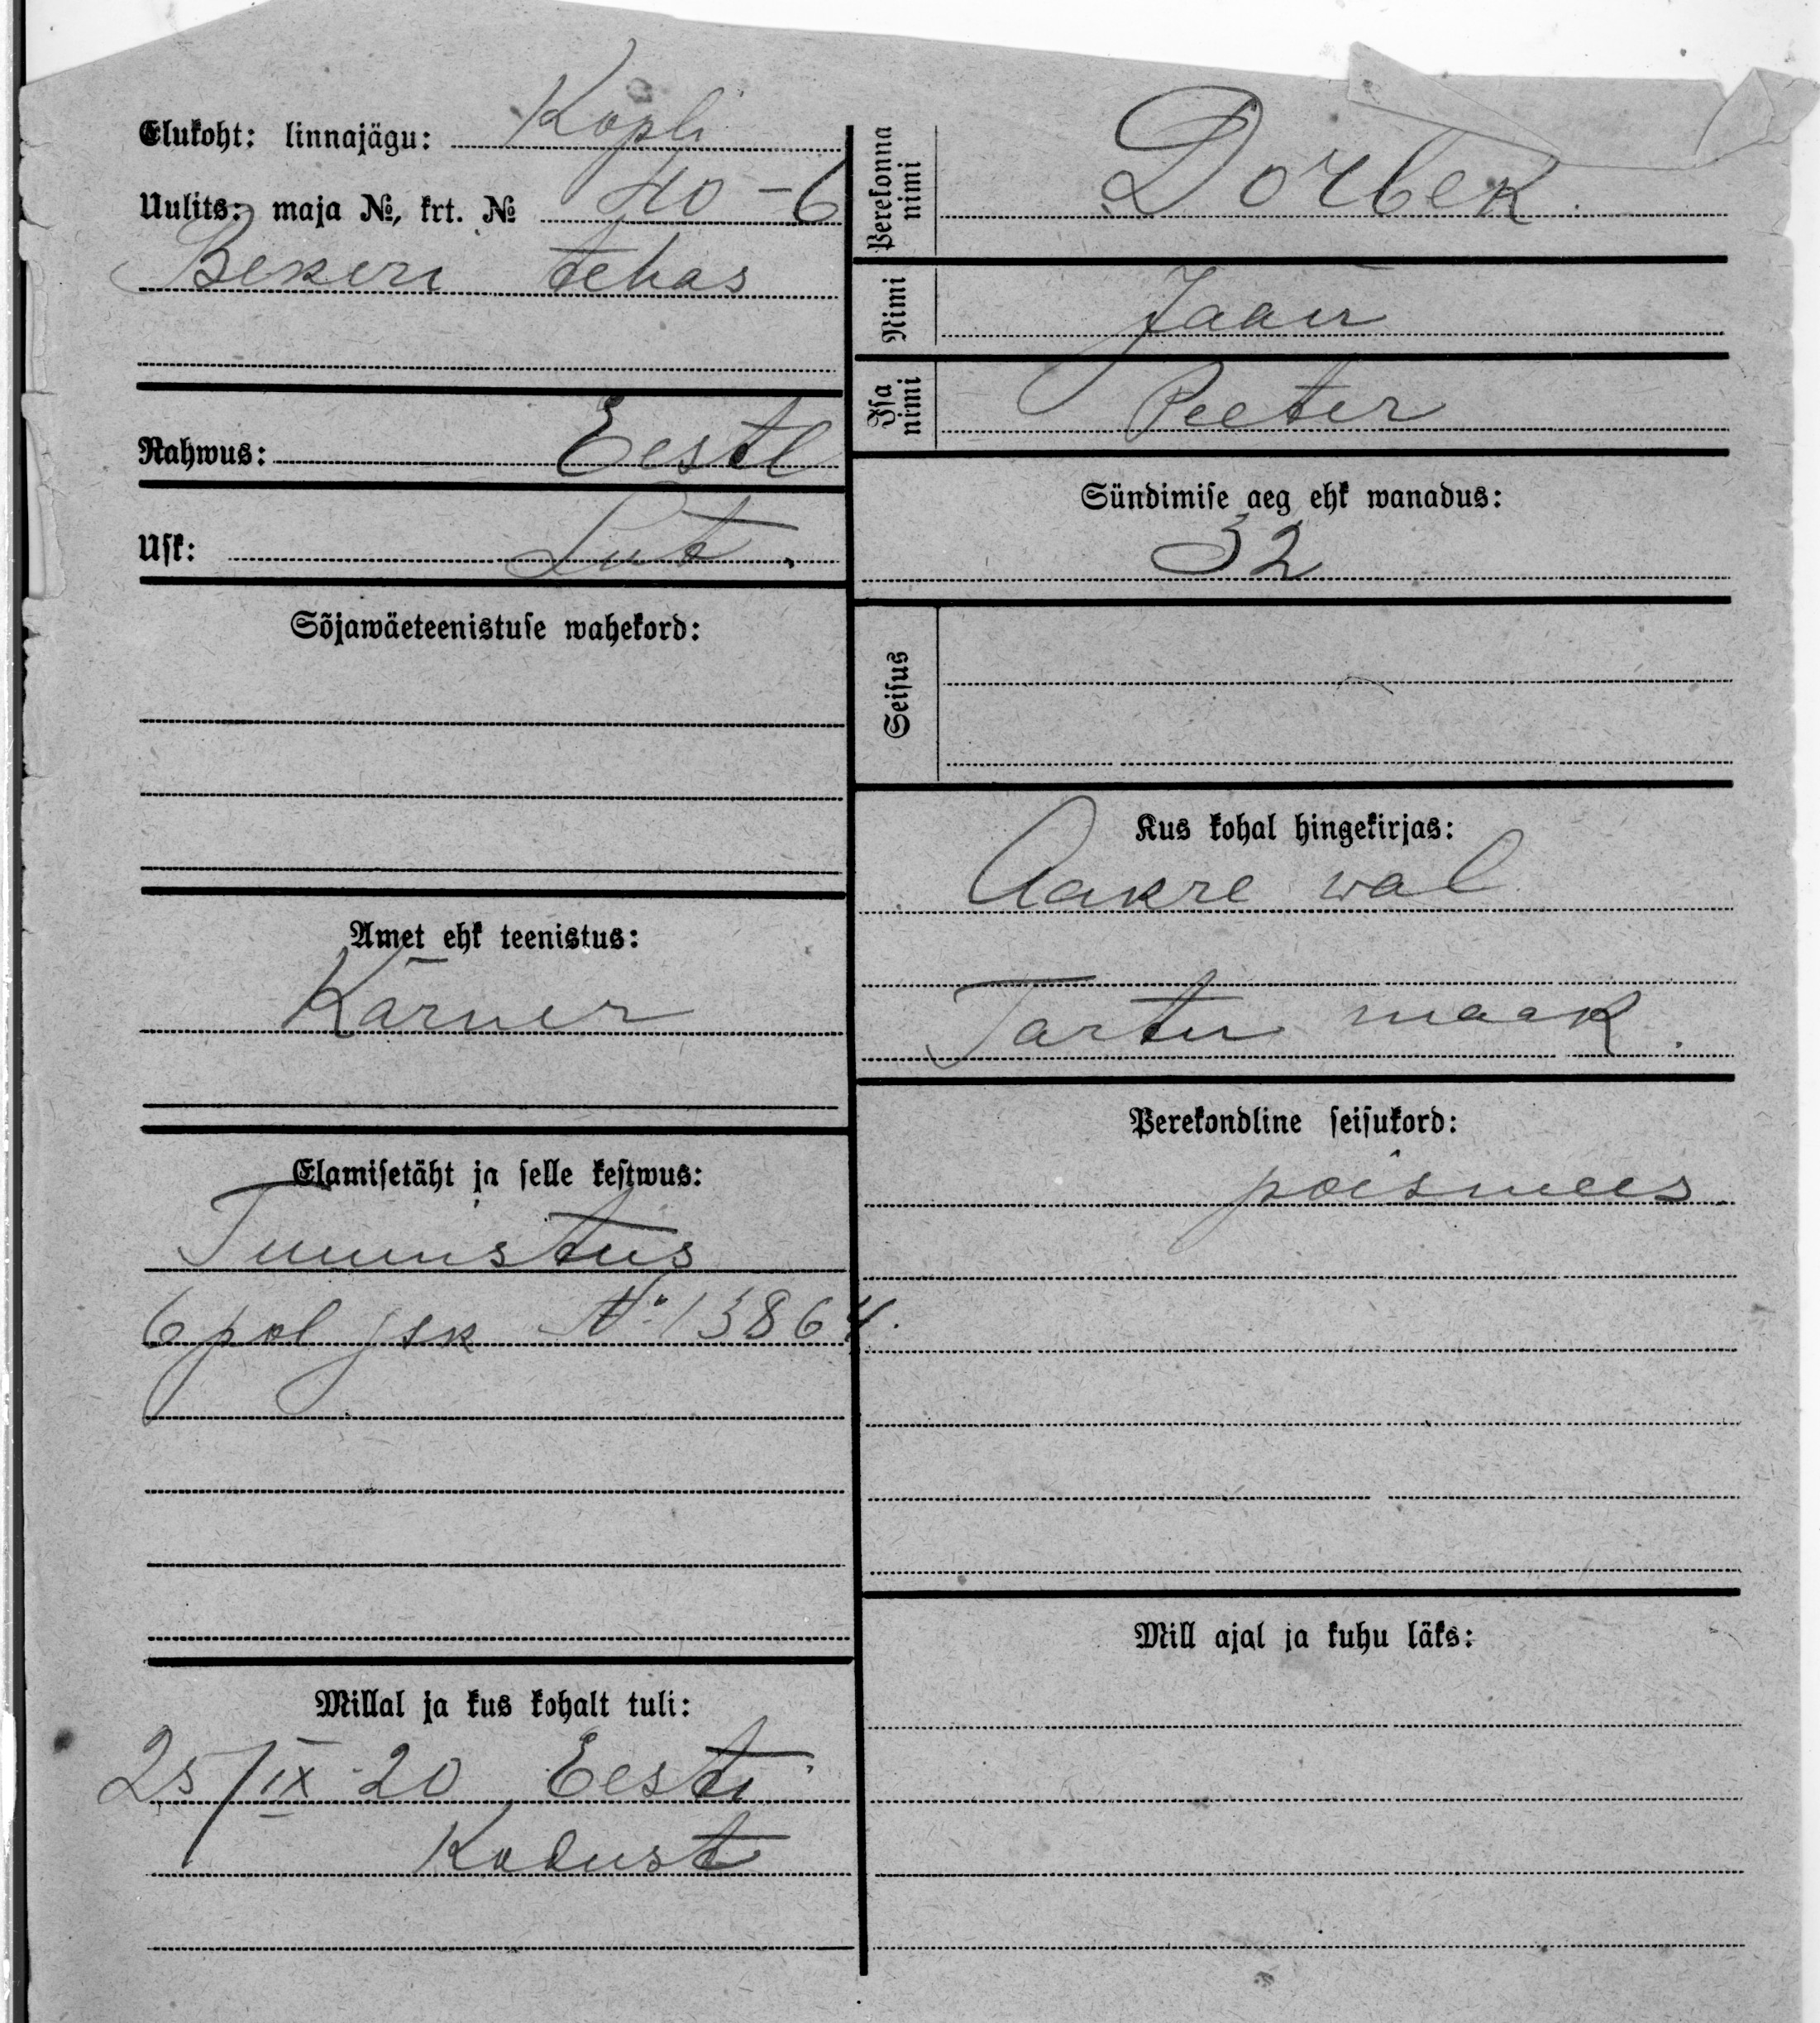 Elukoht: linnajägu: Kopli
Uulits: maja №, krt. № 40-6
Bekeri tehas
Rahwus: Eestl
Usk: Lut.
Sõjawäeteenistuse wahekord:
Amet ehk teenistus:
Kärner
Elamisetäht ja selle kestwus:
Tunnistus
6 pol jsk № 13864.
Millal ja kus kohalt tuli:
25/IX 20 Eesti
Kodust
Perekonna nimi Dorbek.
Nimi Jaan
Isa nimi Peeter
Sündimise aeg ehk wanadus:
32
Seisus
Kus kohal hingekirjas:
Aakre wal
Tartu maak.
Perekondline seisukord:
poismees
Mill ajal ja kuhu läks: